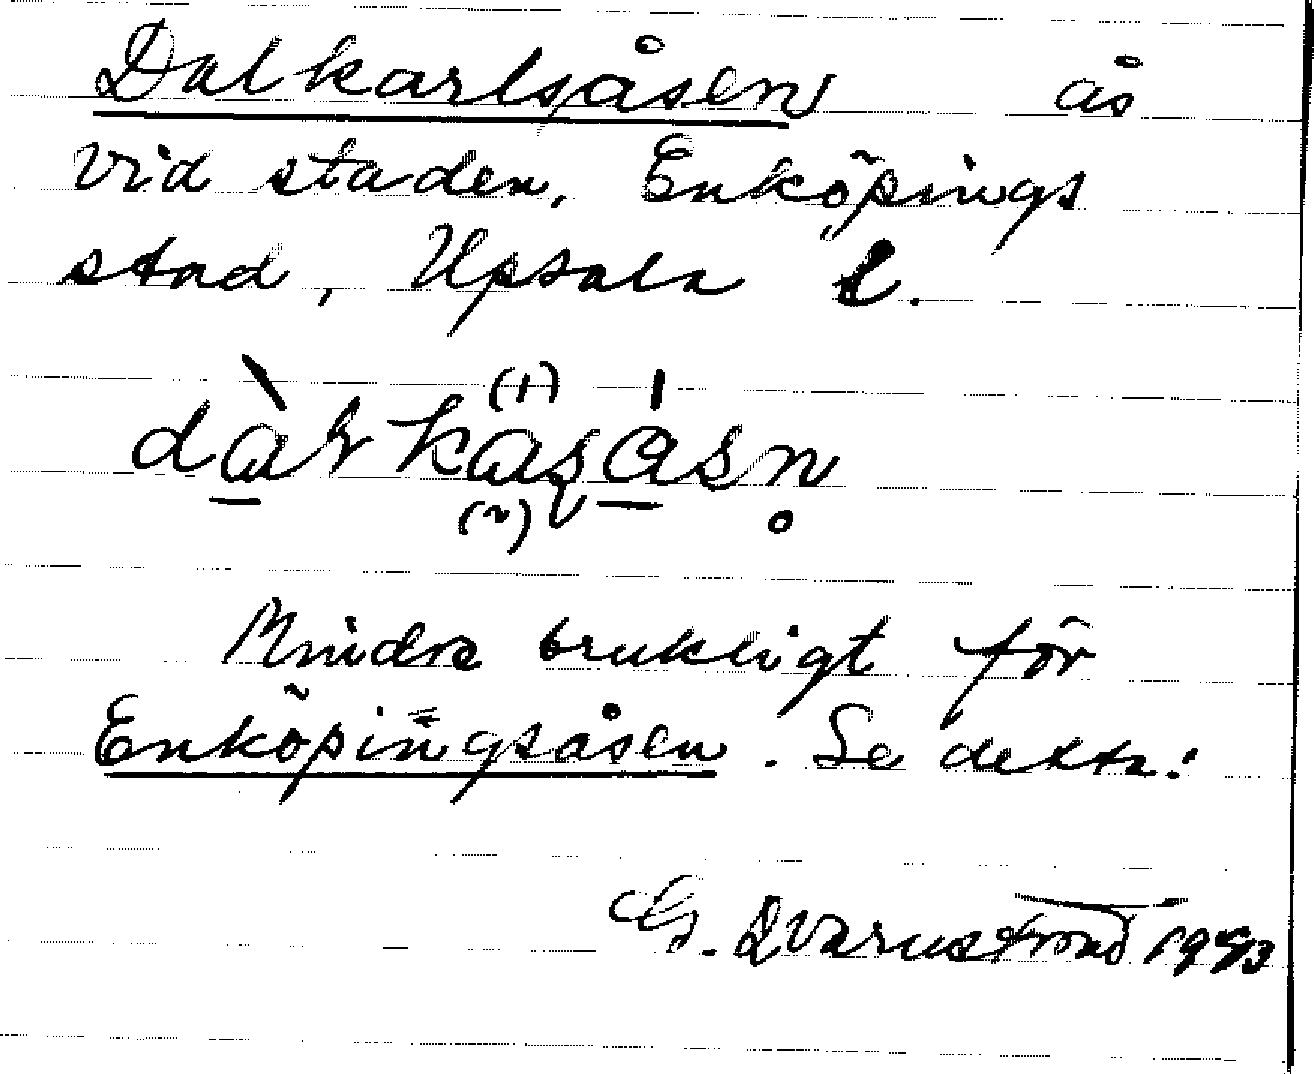 Dalkarlsåsen ås
vid staden, Enköpings
stad, Upsala l.
Mindre brukligt för
Enköpingsåsen. Se detta!
G. Qvarnström 1943